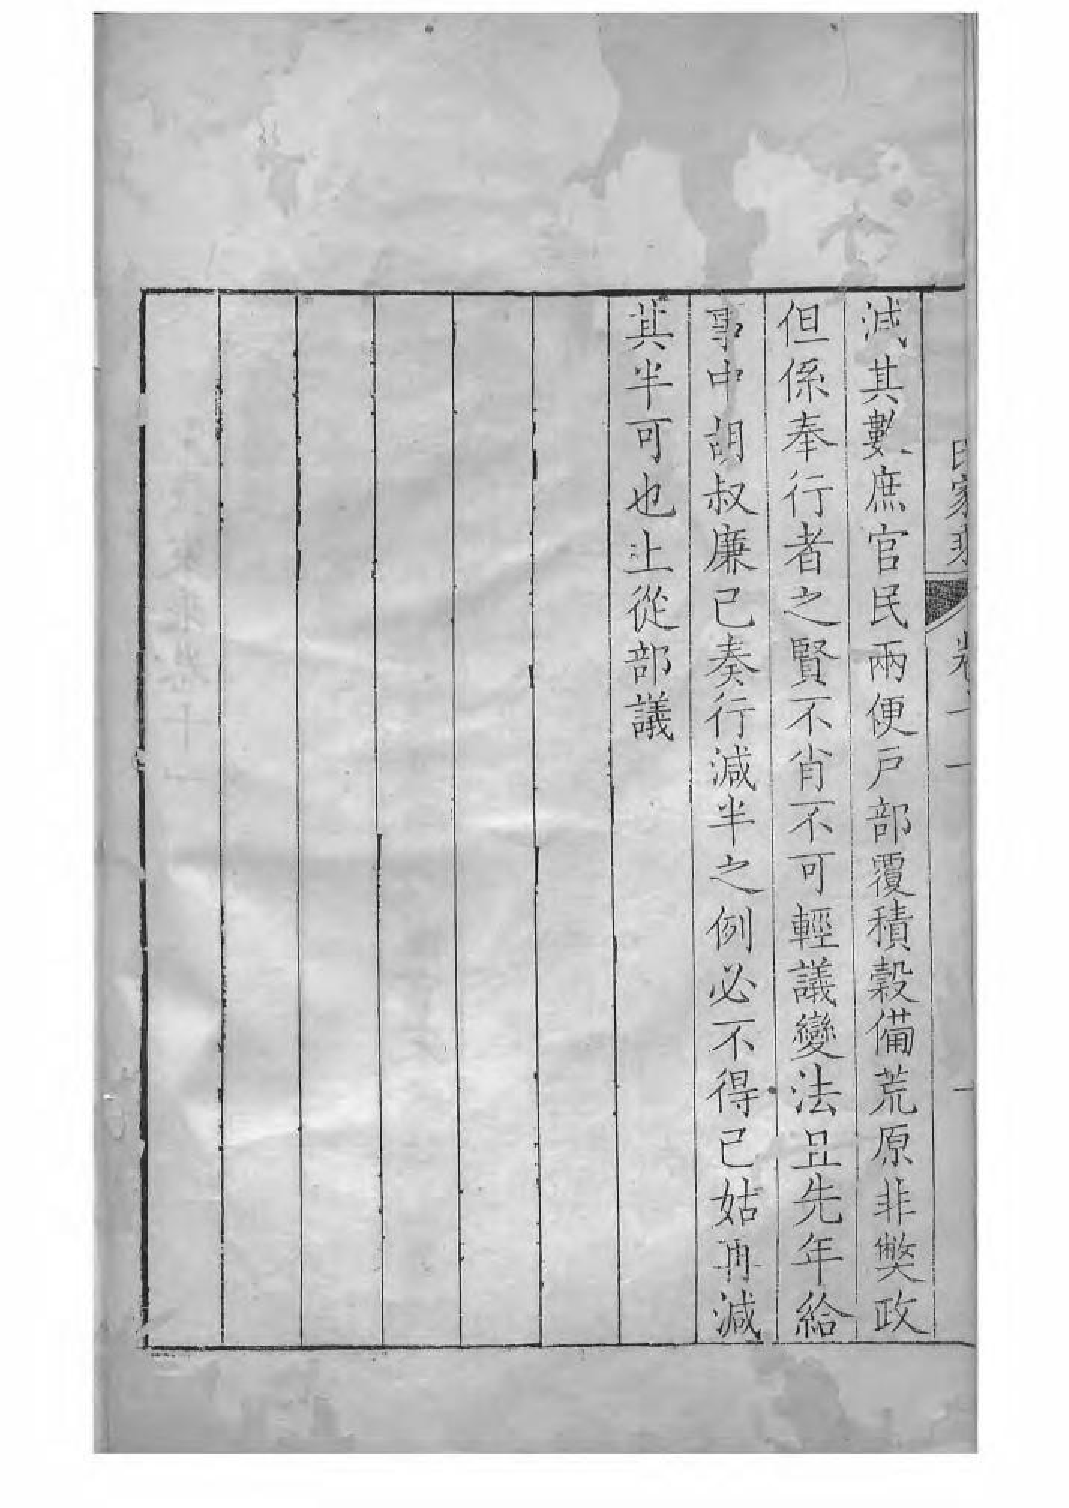 減其數庶官民兩便戶部覆積穀備荒原非獘政
但係奉行者之賢不肖不可輕議變法且先年給
事中胡叔廉已奏行減半之例必不得已姑再減
其半可也上從部議